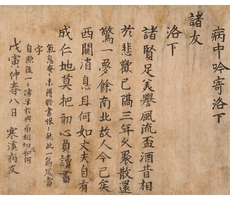 病中吟寄洛下
諸友
洛下
諸賢足義譽風流盃酒昔相
於悲歡已隔三年久聚散還
驚一夢餘南北故人今已矣
西關消息且何如丈夫自有
成仁地莫把初心負讀書
氣息奄奄未得
字
自照後一
戊寅仲春八日寒溪病友